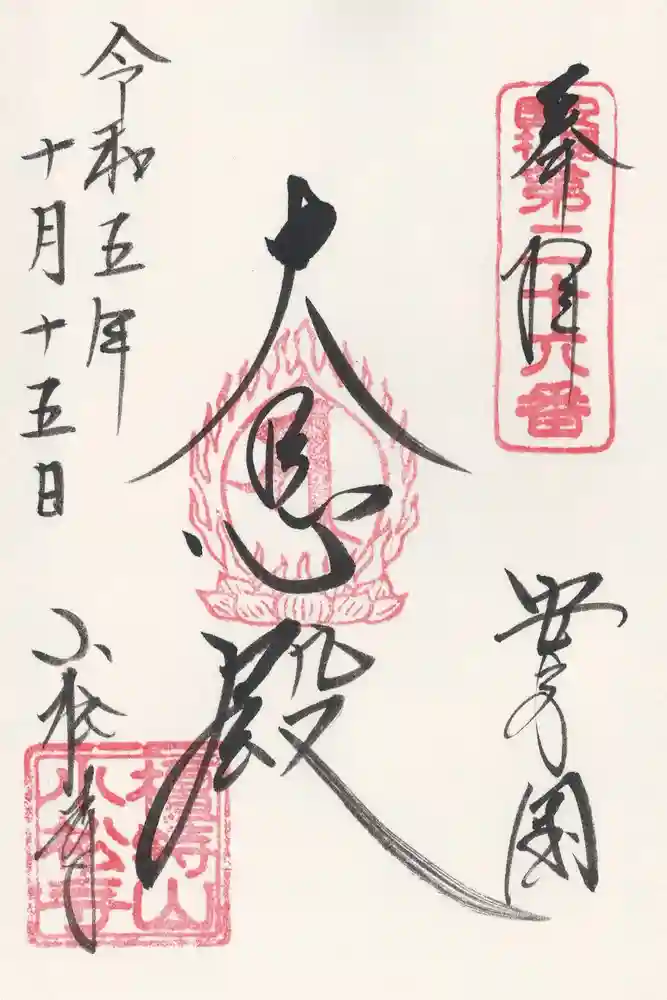 奉拝
第二十六番
安房国
大悲殿
令和五年
十月十五日
小松寺
檀特山
小松寺